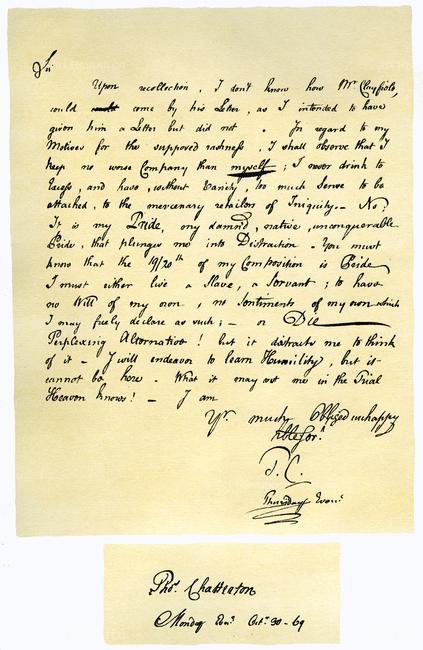 Sir
Upon recollection, I don't know how Mr Clayfield,
could come by his Letter, as I intended to have
given him a Letter but did not. In regard to my
Motives for the supposed rashness, I shall observe that I
keep no worse Company than myself; I never drink to
Excess, and have, without Vanity, too much Sense to be
attached, to the mercenary retailers of Iniquity. – No:
It is my Pride, my damn'd, native, unconquerable
Pride, that plunges me into Distraction. You must
know that the 19/20th of my Composition is Pride
I must either live a Slave, a Servant; to have
no Will of my own, no Sentiments of my own which
I may freely declare as such; – or Die
Perplexing Alternative! but it distracts me to think
of it – I will endeavor to learn Humility, but it
cannot be here. What it may cost me in the Trial
Heaven knows! – I am
Yr. much Obliged unhappy
Hble Ser.t
T.C.
Thursday Even.g
Thos. Chatterton
Monday Octr. 30 – 69